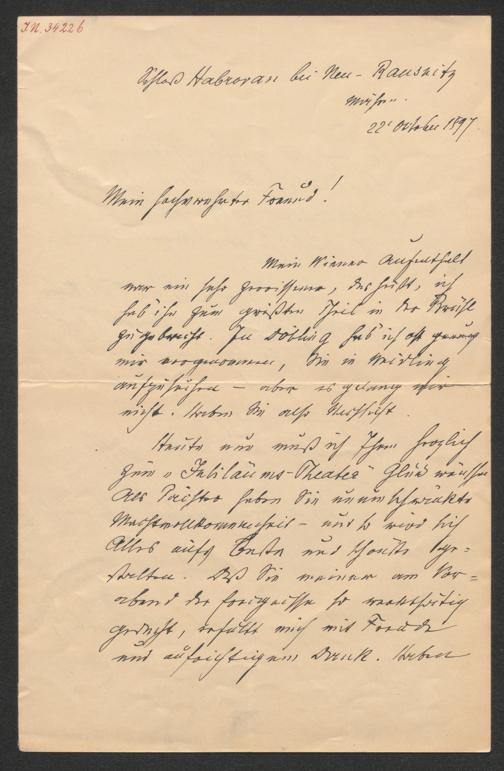 I.N. 34226
Schloß Habrovan bei Neu-Rausnitz
Mähren.
22t October 1897.
Mein hochverehrter Freund!
Mein Wiener Aufenthalt
war ein sehr zerrissener, das heißt, ich
hab' ihn zum größten Theil in der Brühl
zugebracht. In Döbling hab' ich oft genug
mir vorgenommen, Sie in Weidling
aufzusuchen – aber es gelang mir
nicht. Haben Sie also Nachsicht.
Heute nun muß ich Ihnen herzlich
zum "Jubiläums-Theater" Glück wünschen
Als haben Sie unumschränkte
Machtvollkommenheit – und so wird sich
Alles aufs Beste und Schönste ge=
stalten. Daß Sie meiner am Vor=
abend der Ereignisse so werkthätig
gedacht, erfüllt mich mit Freude
und aufrichtigem Dank. Haben